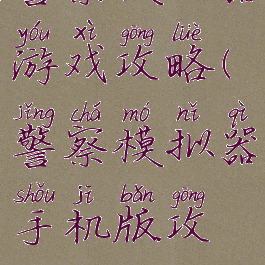 yóu xì gōng lüè
游戏攻略(
jǐng chá mó nǐ qì
警察模拟器
shǒu jī bǎn gōng
手机版攻